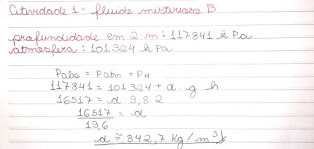 Atividade 1 - fluido misterioso B
profundidade em 2 m: 117841 k Pa
atmosfera: 101324 k Pa
Pabs = Patm + PH
117841 = 101324 + d. g h
16517 = d 9,8 2
16517 = d
19,6
d ≅ 842,7 kg/m³